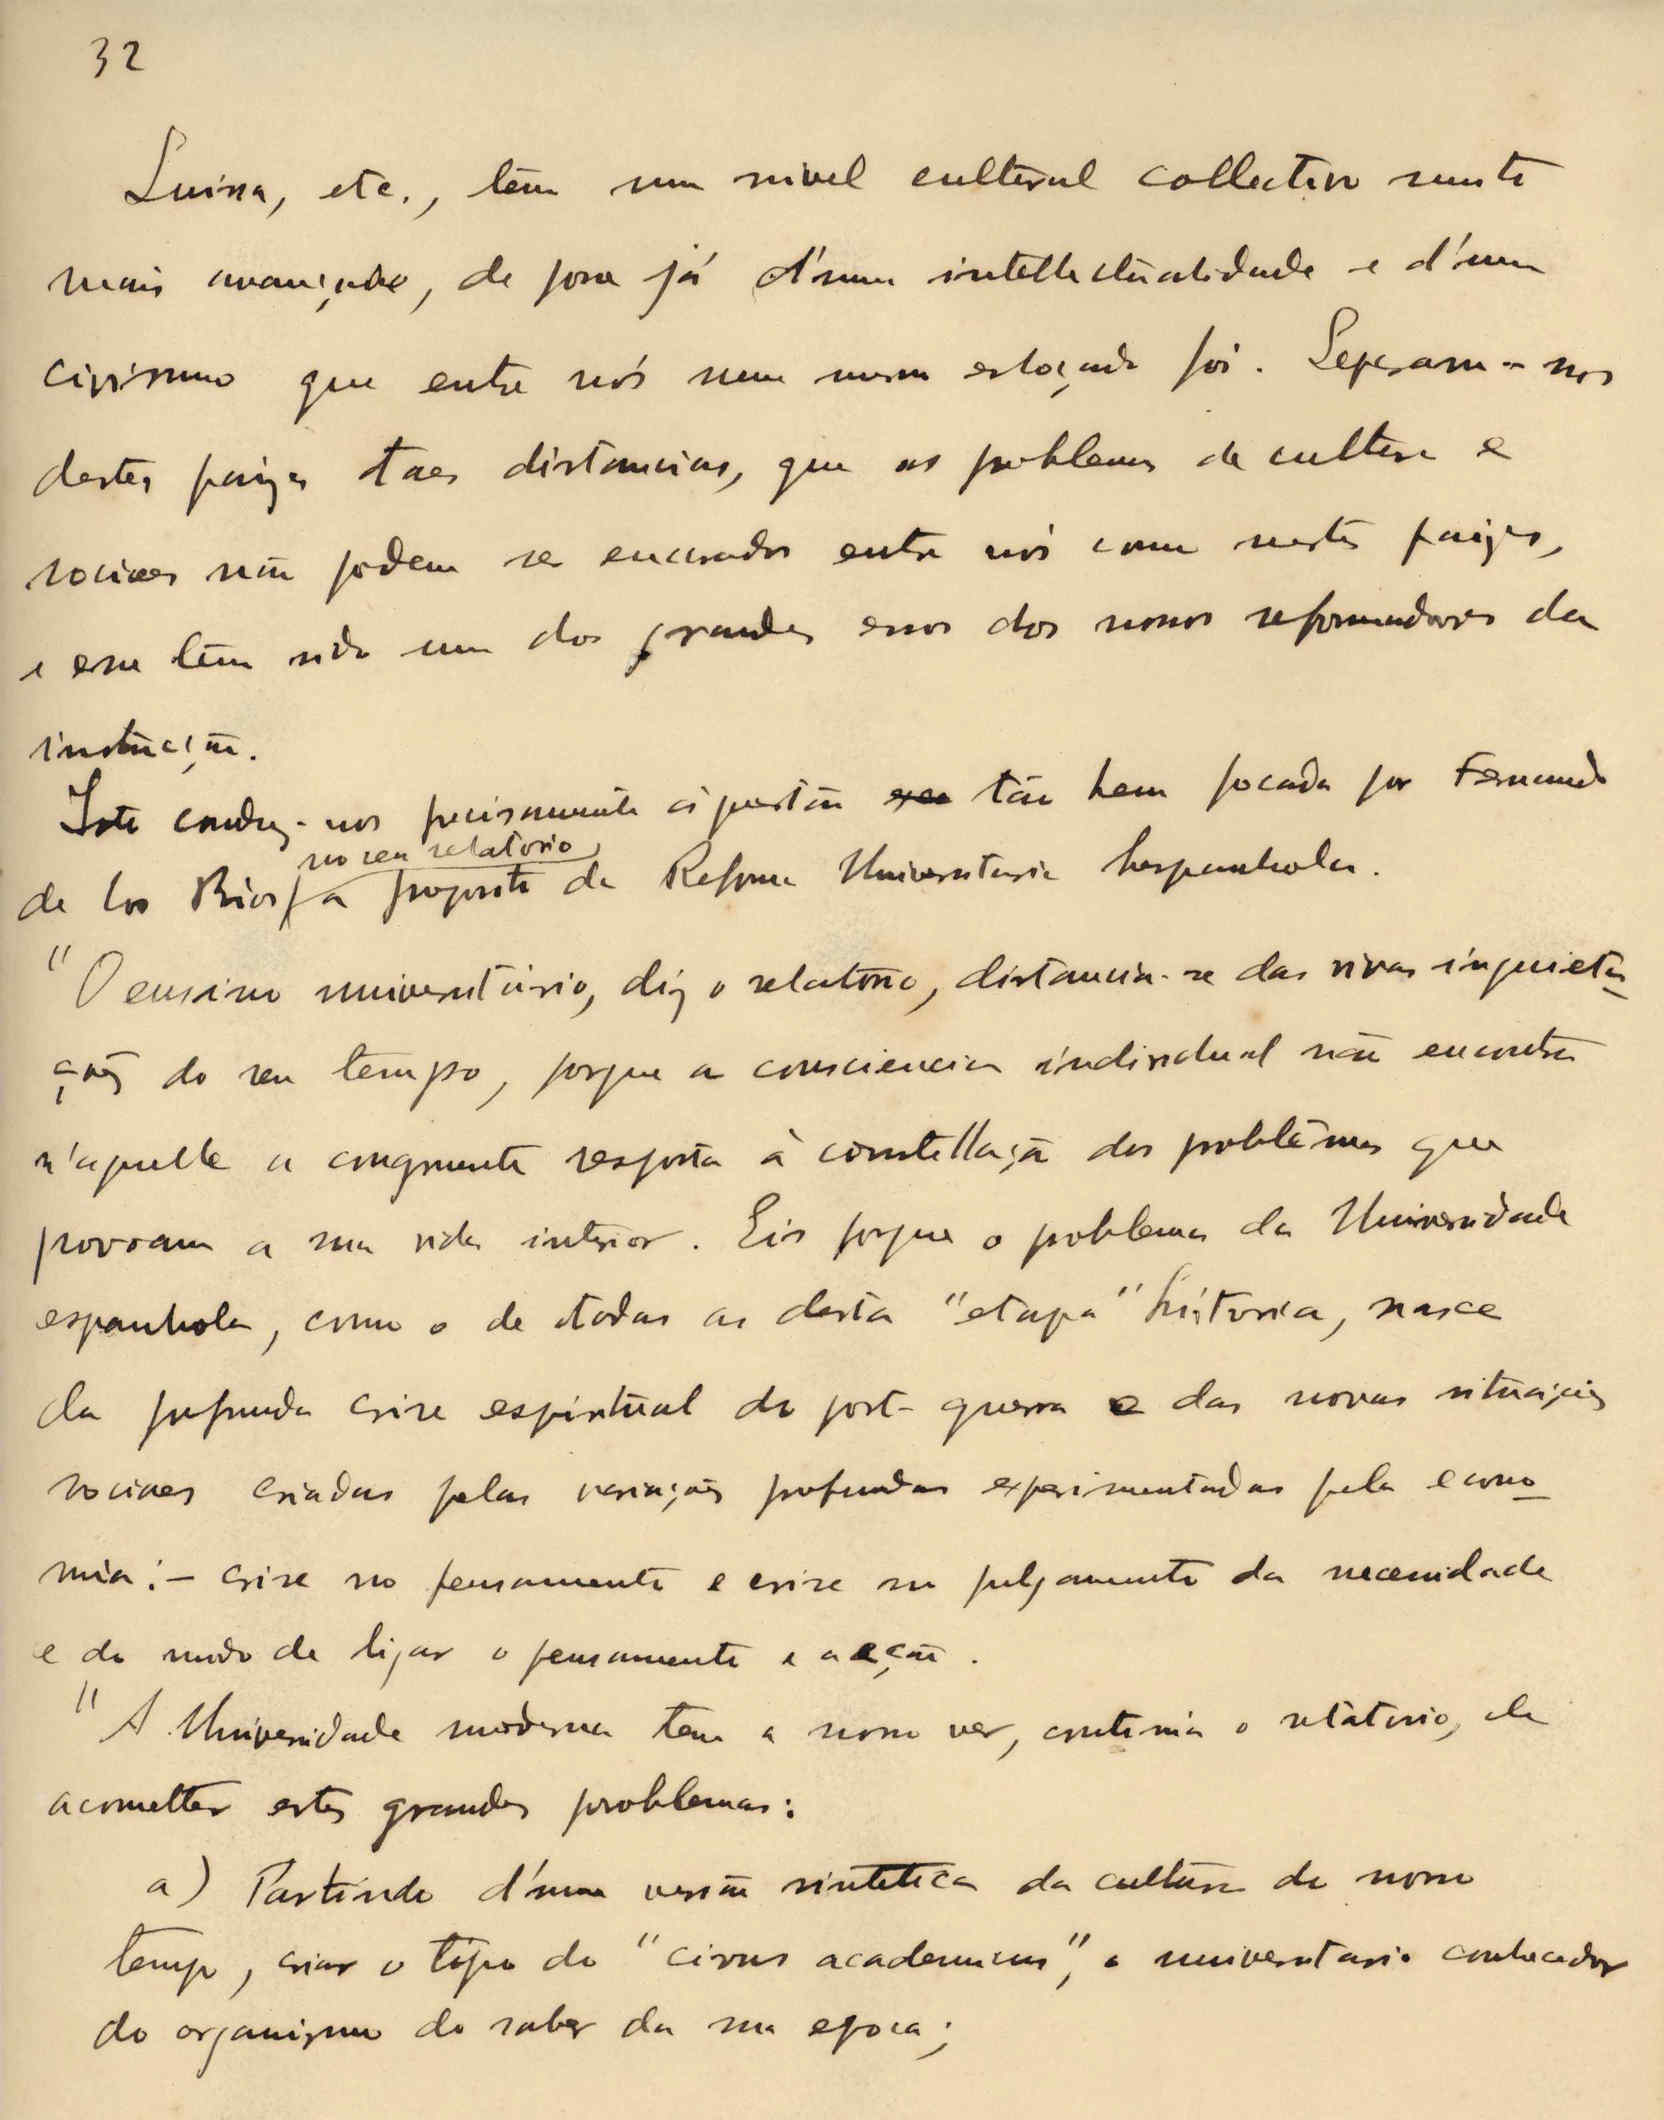 32
Suissa, etc., têm um nivel cultural collectivo muito
mais avançado, de posse já d'uma intellectualidade e d'um
civismo que entre nós nem mesmo esboçado foi. Separam-nos
destes paizes taes distancias, que os problemas de cultura e
sociaes não podem ser encarados entre nós como nestes paizes,
e esse tem sido um dos grandes erros dos nossos reformadores da
instrucção.
Isto conduz-nos precisamente á questão tão bem focada por Fernando
no seu relatorio
de los Rios a proposito da Reforma Universitaria hespanhola.
"O ensino universitário, diz o relatorio, distancia-se das vivas inquieta-
ções do seu tempo, porque a consciencia individual não encontra
n'aquelle a congruente resposta à constellação dos problemas que
povoam a sua vida interior. Eis porque o problema da Universidade
espanhola, como o de todas as desta "etapa" historica, nasce
da profunda crise espiritual do post-guerra e das novas situações
sociaes criadas pelas variações profundas experimentadas pela econo-
mia:- crise no pensamento e crise no julgamento da necessidade
e do modo de ligar o pensamento e a acção.
"A Universidade moderna tem a nosso ver, continúa o relatorio, de
acometter estes grandes problemas:
a) Partindo d'uma versão sintetica da cultura do nosso
tempo, criar o tipo do "civus academicus", o universitario conhecedor
do organismo do saber da sua epoca;